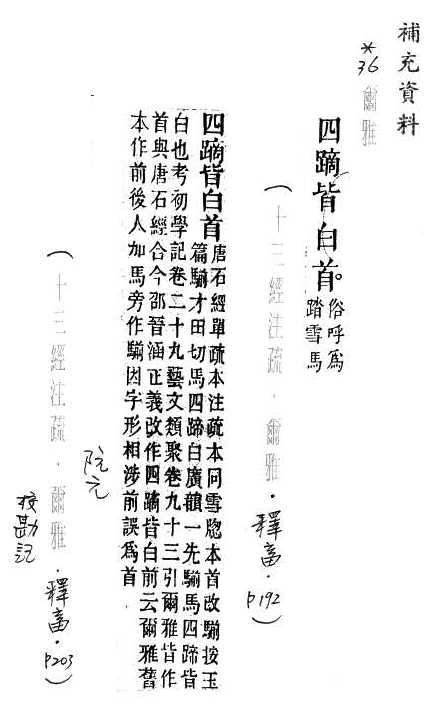 補充資料
*36 爾雅
四蹢皆白首。俗呼為
踏雪馬
(十三經注疏·爾雅·釋畜·P192)
四蹢皆白首 唐石經單疏本注疏本同雪牎本首改騚按玉
篇騚才田切馬四蹄白廣韻一先騚馬四蹄皆
白也考初學記卷二十九藝文類聚卷九十三引爾雅皆作
首與唐石經合今邵晉涵正義改作四蹢皆白前云爾雅舊
本作前後人加馬旁作騚因字形相涉前誤爲首
阮元
(十三經注疏·爾雅·釋畜·P203)
校勘記